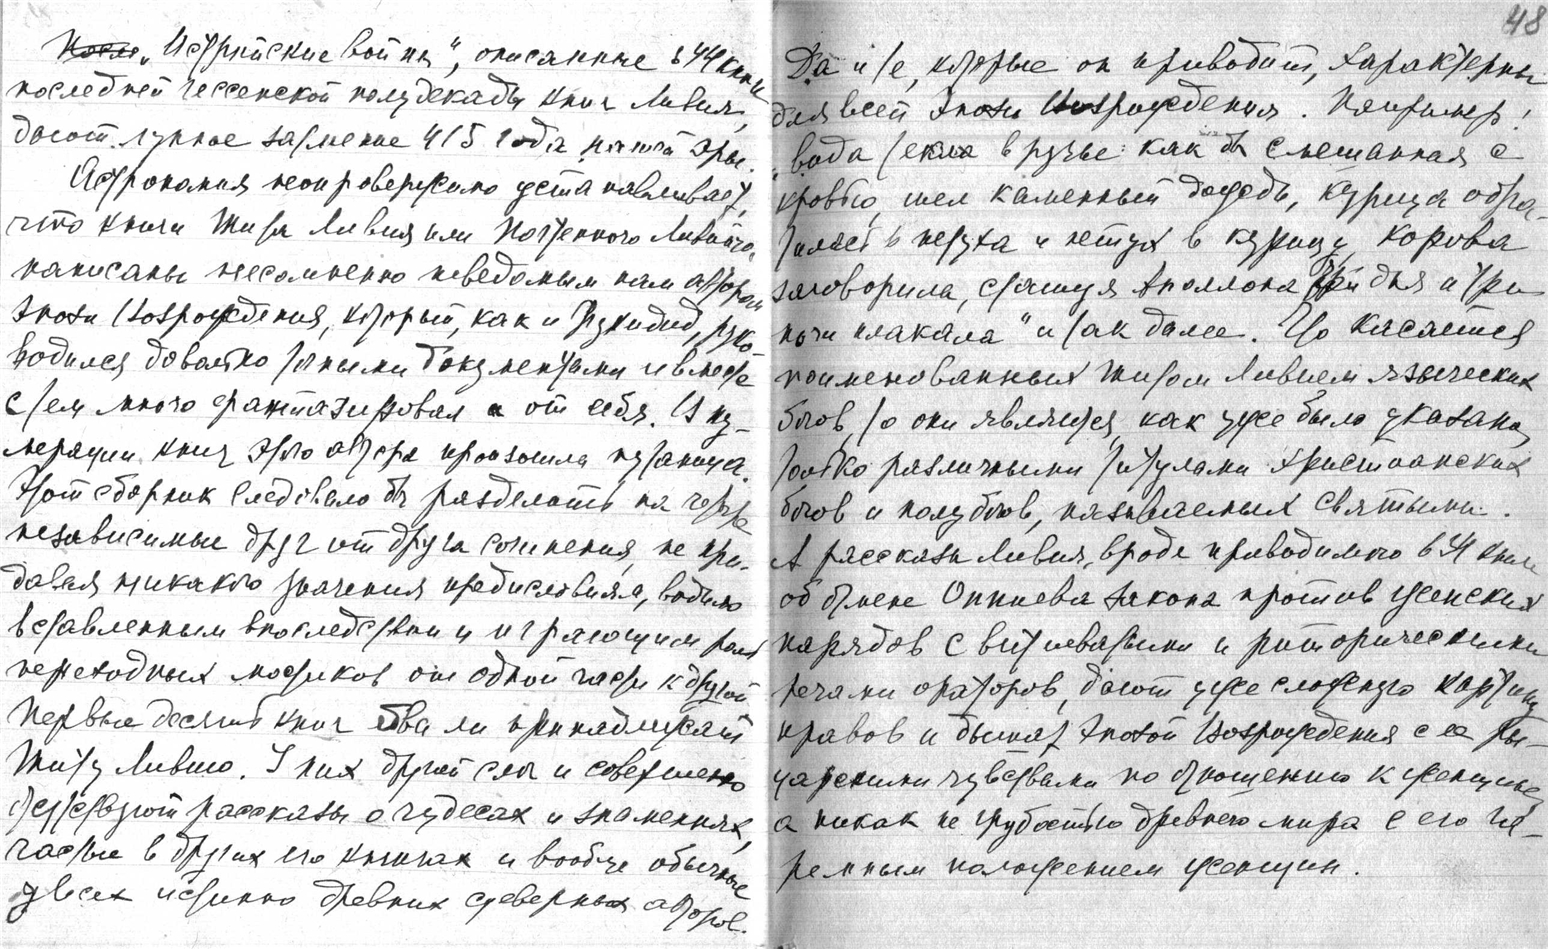 "Истрийские войны", описанные в 44 книге
последней гессенской полудекады книг Ливия,
дают лунное затмение 415 года нашей эры.
Астрономия неопровержимо устанавливает,
что книги Тита Ливия или Почтенного Ливийца
написаны несомненно неведомым нам автором
эпохи Возрождения, который, как и Фукидид, руко-
водился довольно точными документами и вместе
с тем много фантазировал от себя. В ну-
мерации книг этого автора произошла путаница.
Этот сборник следовало бы разделить на четыре
независимые друг от друга сочинения, не при-
давая никакого значения предисловиям, видимо
вставленным впоследствии и играющим роль
переходных мостиков от одной части к другой
Первые десять книг едва ли принадлежат
Титу Ливию. У них другой слог и совершенно
отсутствуют рассказы о чудесах и знамениях,
частые в других его книгах и вообще обычные
у всех истинно древних суеверных авторов.
48
Да и те, которые он приводит, характерны
для всей эпохи Возрождения. Например:
"вода текла в ручье как бы смешанная с
кровью, шел каменный дождь, курица обра-
тилась в петуха и петух в курицу, корова
заговорила, статуя Аполлона три дня и три
ночи плакала" и так далее. Что касается
поименованных Титом Ливием языческих
богов, то они являются, как уже было указано,
только различными титулами христианских
богов и полубогов, называемых святыми.
А рассказы Ливия, вроде приводимого в 34 книге
об отмене Оппиева закона против женских
нарядов с витиеватыми и риторическими
речами ораторов, дают уже сложную картину
нравов и бытаt эпохой Возрождения с ее ры-
царскими чувствами по отношению к женщине,
а никак не грубостью древнего мира с его га-
ремным положением женщин.